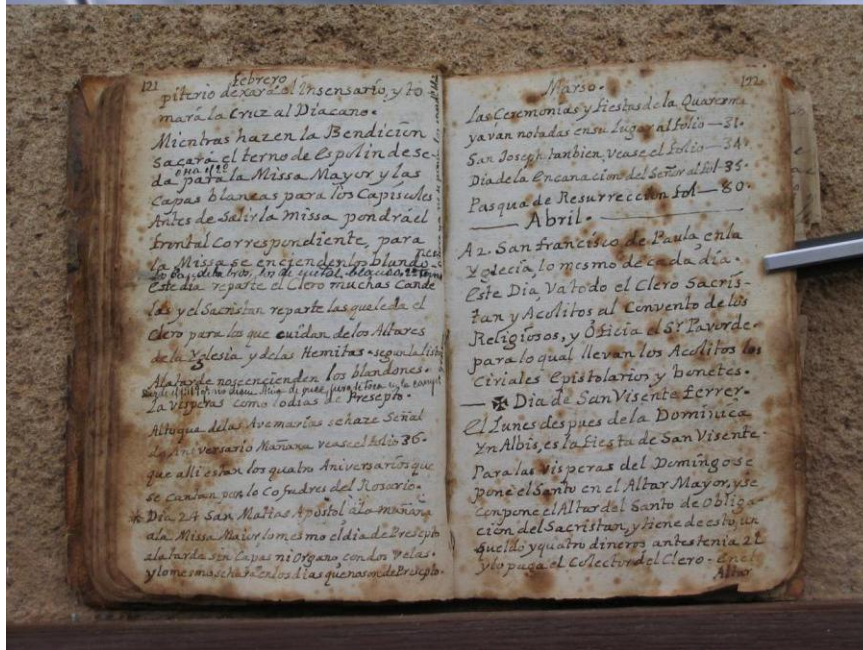 121
Febrero
piterio dexará el insensario, y to
mará la Cruz al Diacano.
Mientras hazen la Bendicion
Sacará el terno de espolin de se-
da para la Missa Mayor y las
Capas blancas para los Capiscoles
Antes de Salir la missa pondrá el
frontal Correspondiente, para
la Missa se encienden los blando-
nes
este dia reparte el Clero muchas Cande
las y el Sacristan reparte las que le da el
Clero para los que cuidan de los Altares
de la Yglesia y de las Hemitas. segun la lista
A la tarde no se encienden los blandones.
La visperas como lo dias de Presepto.
Al toque de las Avemarias se haze Señal
de Aniversario Mañana vease el folio 36.
que alli estan los quatro Aniversarios que
se Cantan por lo Cofadres del Rosario.
Dia 24 San Matias Apostol a la mañana
a la Missa Maior lo mesmo el dia de Presepto
a la tarde sin Capas ni Organo con dos velas.
y lo mesmo se hara en los dias que no son de Presepto.
122
Marso.
Las Ceremonias y fiestas de la Quaresma
ya van notadas en su lugar al folio — 31.
San Joseph tanbien, vease el folio — 34.
Dia de la Encanacion del Señor al fol. 35.
Pasqua de Resurreccion fol — 80.
Abril.
A 2. San francisco de Paula en la
Yglecia, lo mesmo de cada dia.
Este Dia, Va todo el Clero Sacris-
tan y Acolitos al Convento de los
Religiosos, y Oficia el Sr Pavorde.
para lo qual llevan los Acolitos los
Ciriales Epistolarios y bonetes.
— ✠ Dia de San Visente ferrer.
el Lunes despues de la Dominica
Yn Albis, es la fiesta de San Visente.
Para las visperas del Domingo se
pone el Santo en el Altar Mayor, y se
Conpone el Altar del Santo de Obliga-
cion del Sacristan, y tiene de esto, un
Sueldo y quatro dineros antes tenia 2 L
y lo paga el Colector del Clero. En el
Altar